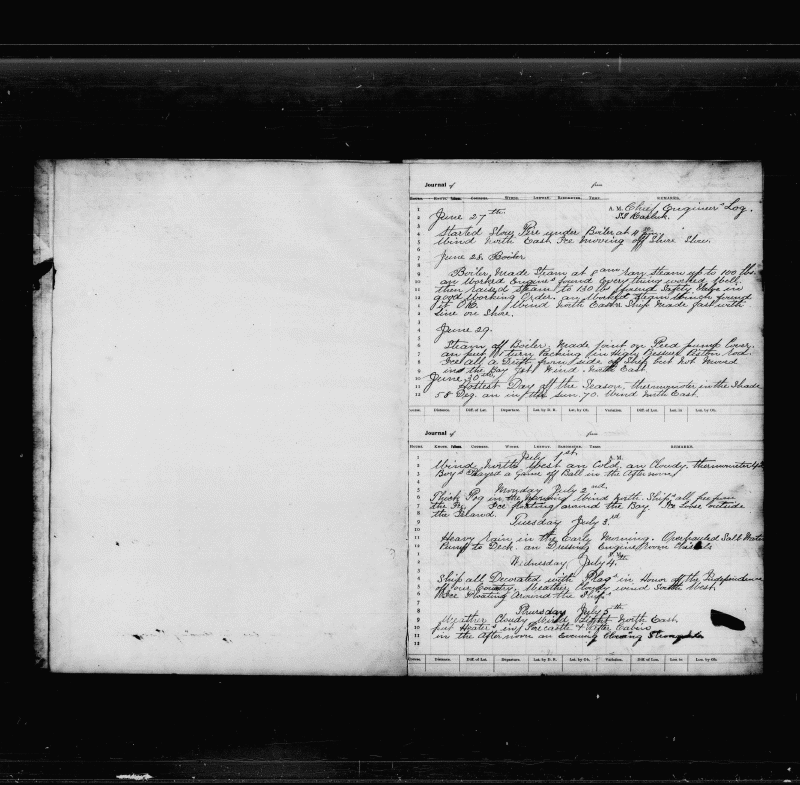 Journal of from
HOURS. KNOTS. COURSES. WINDS. LEEWAY. BAROMETER. TEMP. REMARKS.
A. M. Chief Engineer's Log.
June 27th. SS Karluk.
Started Slow Fire under Boiler at
Wind North East Ice moving off Shore Slow.
June 28. Boiler
Boiler Made Steam at 8 am ran Steam up to 100 lbs
an Worked Engine found Every thing worked well.
then raised Steam to 130 lbs found Safety Valve in
good Working Order. an Worked Steam Winch found
it OK. Wind North East Ship Made fast with
Line on Shore.
June 29.
Steam off Boiler. Made joint on Feed pump Cover
an put 1 turn Packing in High Pressure Piston rod.
Ice all a Drift from side of Ship but Not Moved
in the Bay Yet Wind North East
June 30th.
Hottest Day off the Season, thermometer in the Shade
58 Deg. an in the sun 70. Wind North East
HOURS. Distance. Diff of Lat. Departure. Lat. by D. R. Lat. by Ob. Variation. Diff of Lon. Lon. in Lon. by Ob.
Journal of from
HOURS. KNOTS. COURSES. WINDS. LEEWAY. BAROMETER. TEMP. REMARKS.
July 1st. A. M.
Wind North West an Cold. an Cloudy, thermometer 42
Boys Played a Game off Ball in the Afternoon
Monday July 2nd
Thick Fog in the Morning Wind North. Ship all free from
the Ice. Ice floating around the Bay. Ice Loose outside
the Island.
Tuesday July 3rd
Heavy Rain in the Early Morning. Overhauled Salt Water
Pump to Deck. an Dressing Engine Room
Wednesday July 4th
Ship all Decorated with Flags in Honor off the Independence
off our Country. Weather Cloudy wind South West
Ice Floating around the Ship
Thursday July 5th
Weather Cloudy Wind Light North East
put Heaters in Forecastle & After Cabin
in the Afternoon an Evening Blowing Strong
HOURS. Distance. Diff of Lat. Departure. Lat. by D. R. Lat. by Ob. Variation. Diff of Lon. Lon. in Lon. by Ob.